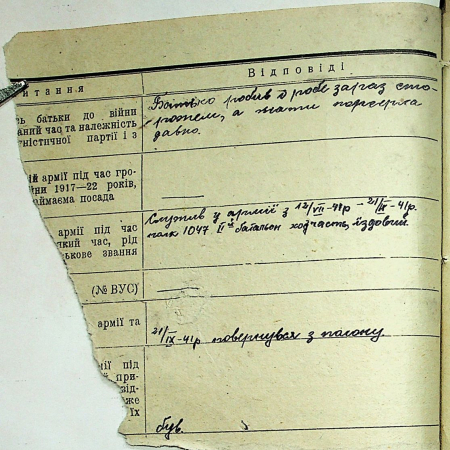 Відповіді
итання
сь батьки до війни
аний час та належність
ністичної партії і з
Батько робив і робе зараз сто-
рожем, а мати померла
давно.
ій армії під час гро-
йни 1917—22 років,
аймаєма посада
армії під час
який час, рід
ькове звання
Служив у армії з 12/VII-41р – 21/IX-41р.
полк 1047 II й батальон ходчасть, їздовий
(№ ВУС)
армії та
21/IX-41р повернувся з полону.
мії під
при-
від-
оже
їх
був.